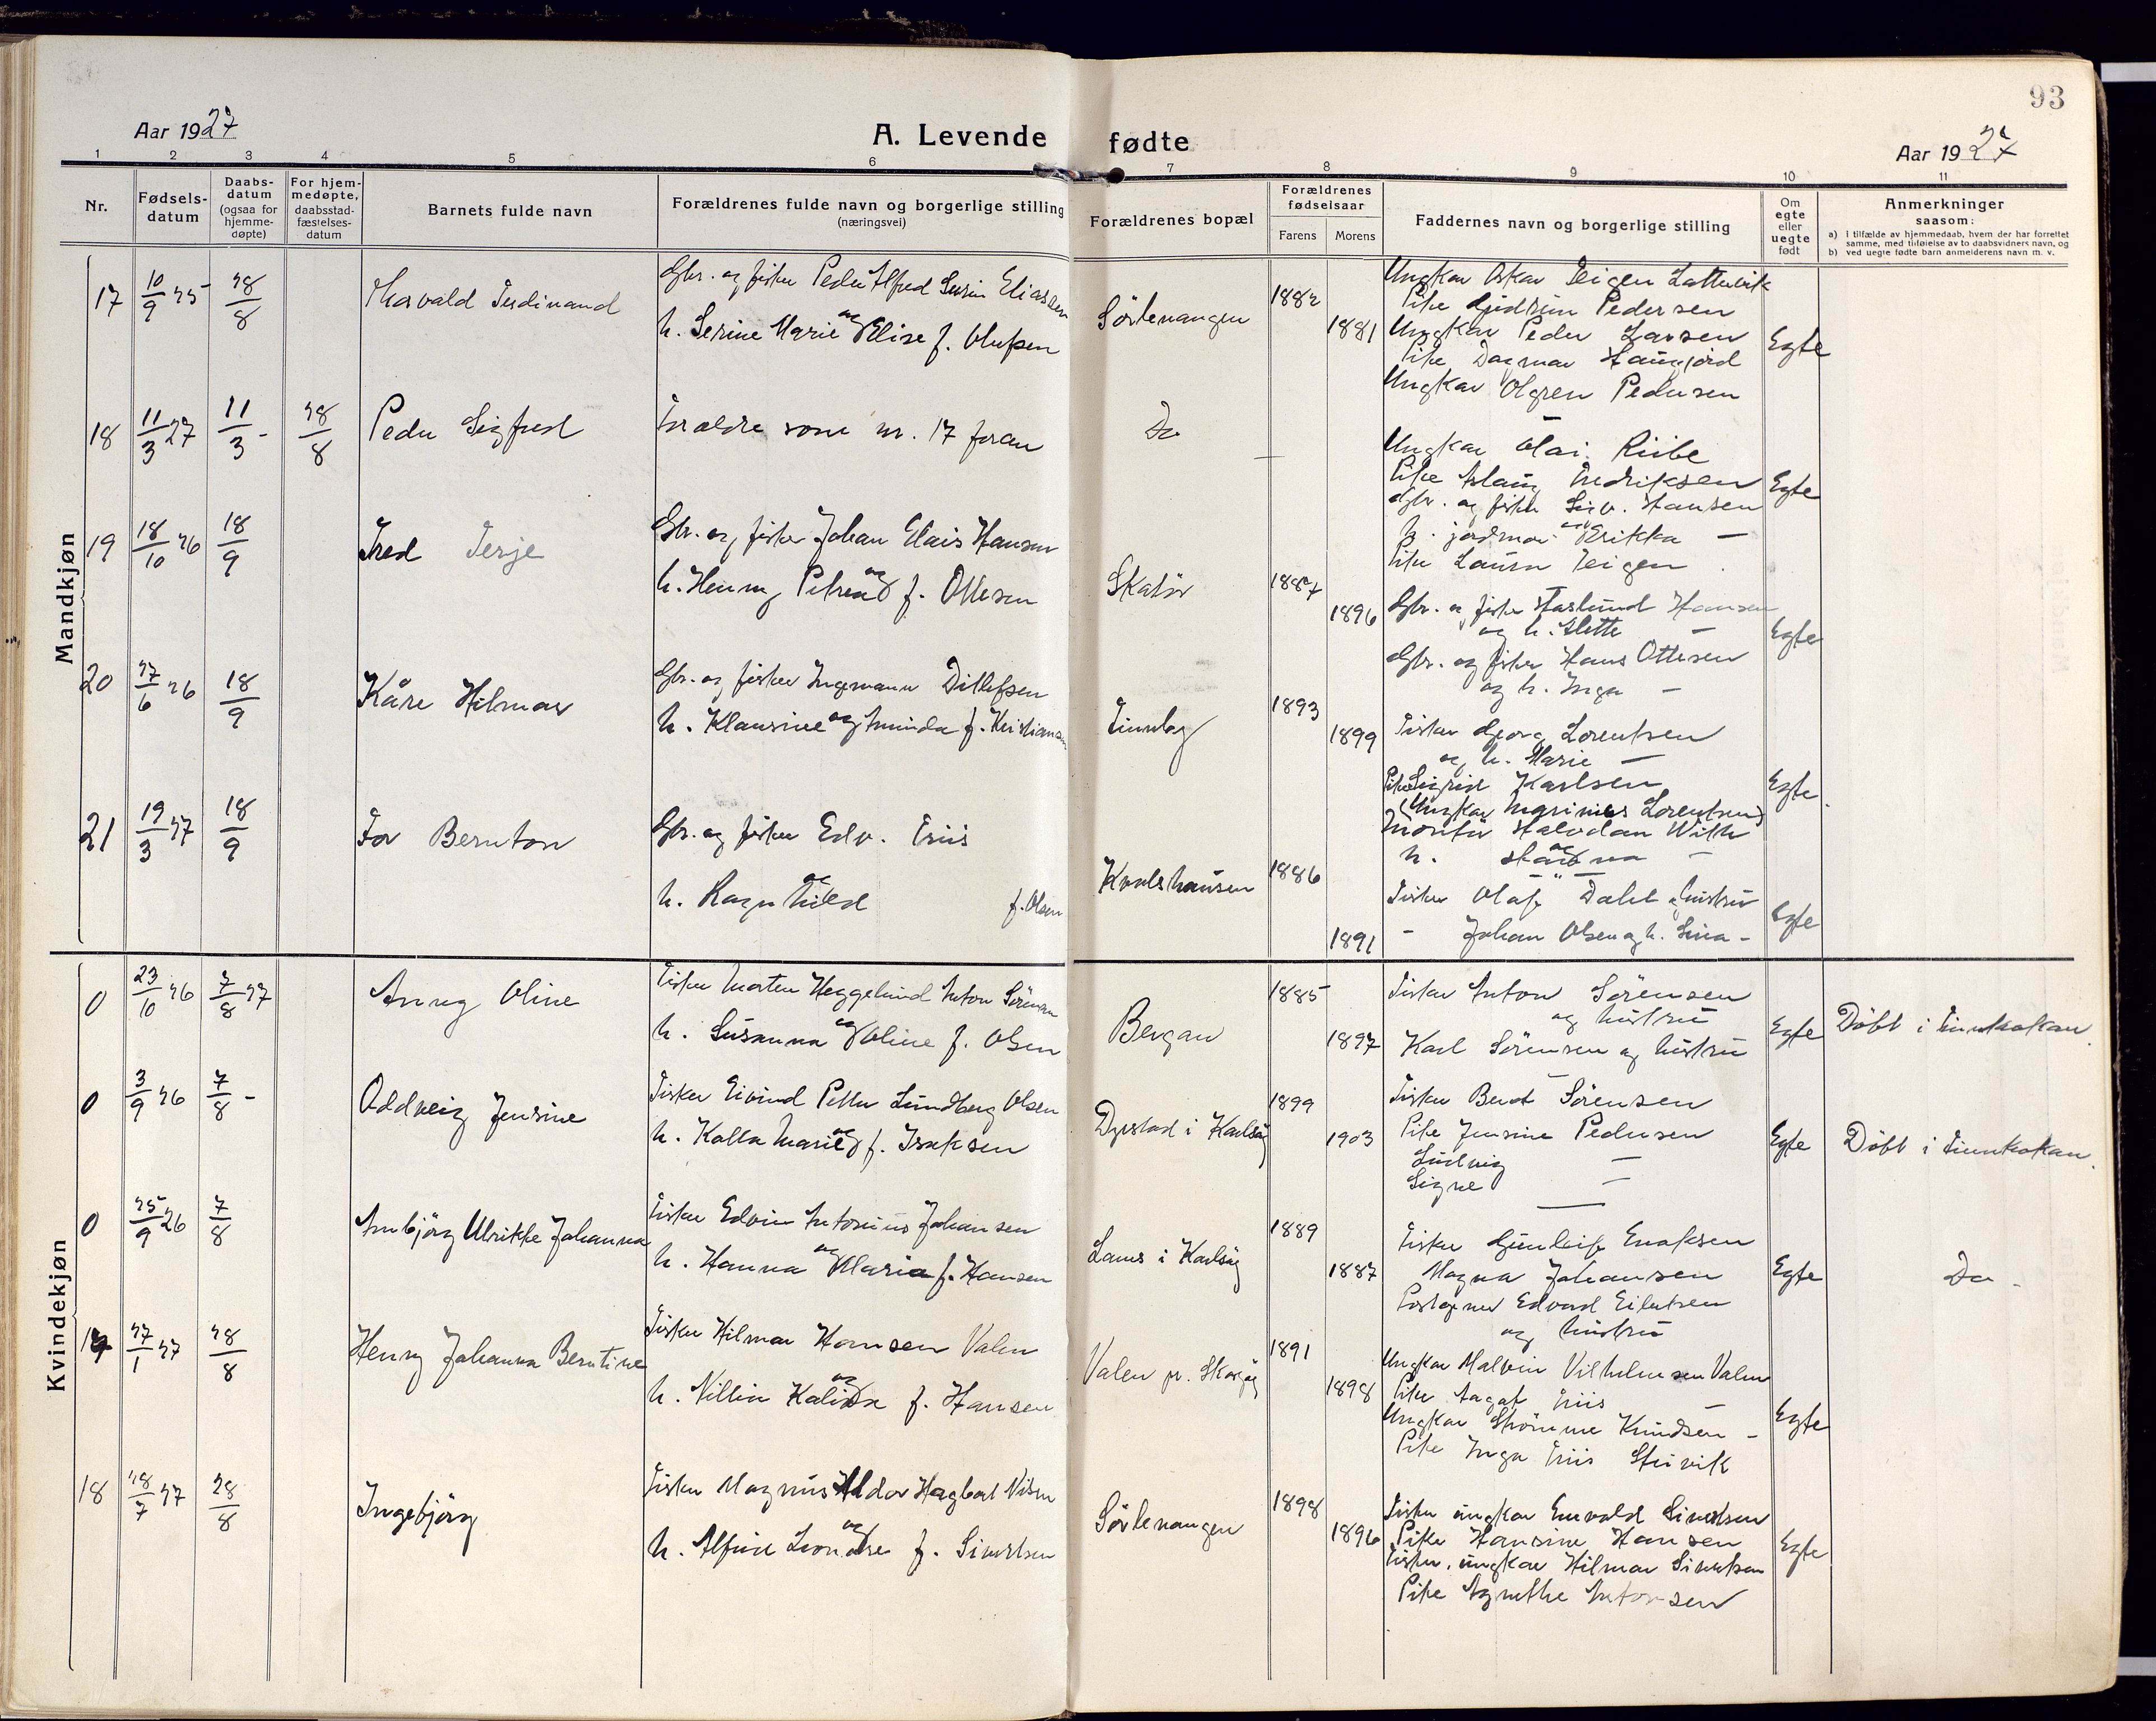 93
Aar 1927
A. Levende fødte
Aar 1927
1 2 3 4 5 6 7 8 9 10 11
Nr.
Fødsels-
datum
Daabs-
datum
(ogsaa for
hjemme-
døpte)
For hjem-
medøpte,
daabsstad-
fæstelses-
datum
Barnets fulde navn
Forældrenes fulde navn og borgerlige stilling
(næringsvei)
Forældrenes bopæl
Forældrenes
fødselsaar
Farens Morens
Faddernes navn og borgerlige stilling
Om
egte
eller
uegte
født
Anmerkninger
saasom:
a) i tilfælde av hjemmedaab, hvem der har forrettet
samme, med tilføielse av to daabsvidners navn, og
b) ved uegte fødte barn anmelderens navn m. v.
Mandkjøn
17 10/9 25 28/8 Thorvald Ferdinand
Gbr. og fisker Peder Alfred Severin Eliassen
og
h. Serine Marie Elise f. Olufsen
Sörlenangen 1882 1881
Ungkar Oskar Teigen Lattervik
Pike Gudrun Pedersen
Ungkar Peder Larsen
Pike Dagmar Haugjord
Ungkar Olgren Pedersen
Egte
18 11/3 27 11/3 - 28/8 Peder Sigfred
Forældre som nr. 17 foran
Do —
Ungkar Olai Riibe
Pike Aslaug Fredriksen
Gbr. og fisker Sev. Hansen
og
h. jordmor Erikka —
Pike Laura Teigen
Egte
19 18/10 26 18/9 Fred Terje
Gbr. og fisker Johan Elais Hansen
og
h. Henny Petrea f. Ottesen
Skatör 1887 1896
Gbr. og fisker Haslund Hansen
og h. Mette —
Gbr. og fisker Hans Ottesen
og h. Inga —
Egte
20 27/6 26 18/9 Kåre Hilmar
Gbr. og fisker Ingemann Ditlefsen
og
h. Klausine Aminda f. Kristiansen
1893 1899
Fisker Georg Lorentsen
og h. Marie —
Pike Sigrid Karlsen
(Ungkar Marinius Lorentsen)
Egte
21 19/3 27 18/9 Tor Bernton
Gbr. og fisker Edv. Friis
og
h. Ragnhild f. Olsen
Kvalshausen 1886 1891
Montör Halvdan With
og
h. —
Fisker Olaf Dahl og hustru
- Johan Olsen og h. Sina -
Egte
Kvindekjøn
0 23/10 26 7/8 27 Anny Oline
Fisker Morten Heggelund Anton Sörensen
og
h. Susanna Oline f. Olsen
Bergan 1885 1897
Fisker Anton Sörensen
og hustru
Karl Sörensen og hustru
Egte Döbt i Finnkroken.
0 3/9 26 7/8 - Oddveig Jensine
Fisker Eivind Petter Lundberg Olsen
og
h. Kalla Marie f. Isaksen
Dyrstad i Karlsöy 1899 1903
Fisker Berdt Sörensen
Pike Jensine Pedersen
Ludvig —
Signe —
Egte Döbt i Finnkroken.
0 25/9 26 7/8 Annbjörg Ulrikke Johanna
Fisker Edvin Antonius Johansen
og
h. Hanna Maria f. Hansen
Lanes i Karlsöy 1889 1887
Fisker Gunleif Enoksen
Magna Johansen
Postaapner Edvard Eilertsen
og hustru
Egte Do -
17 27/1 27 28/8 Henny Johanna Berntine
Fisker Hilmar Hansen Valen
og
h. Nillia Kalida f. Hansen
Valen pr. Skaröy 1891 1898
Ungkar Malvin Vilhelmsen Valen
Pike Aagot Friis —
Ungkar Strömme Knudsen -
Pike Inga Friis Storvik
Egte
18 28/7 27 28/8 Ingebjörg
Fisker Magnus Aldor Hagbart Nilsen
og
h. Alfine Leondre f. Sivertsen
Sörlenangen 1898 1896
Fisker ungkar Envald Sivertsen
Pike Hansine Hansen
Fisker. ungkar Hilmar Sivertsen
Pike Agnethe Antonsen
Egte